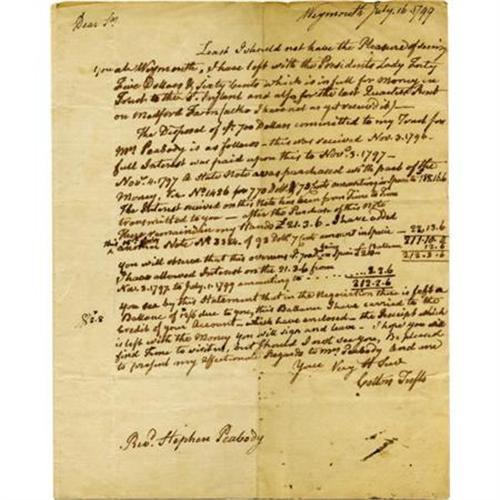 Weymouth July. 16. 1799
Dear Sr.
Least I should not have the Pleasure of seeing
you at Weymouth, I have left with the Presidents Lady Forty
Five Dollars & Sixty Cents which is in full for Money in
Trust to the and also for the last Quarters Rent
on Medford Farm (altho I have not as yet received it) —
The Disposal of Dollars committed to my Trust for
Mrs Peabody is as follows — this was received Nov. 3. 1796.
full Interest was paid upon this to Novr. 3. 1797 —
Novr. 4. 1797 A State Note was purchased with part of the
Money, No 1426 for 770 Doll
The Interest received on this Note has been from Time to Time
transmitted to you — after the Purchase of this Note
there remained in my Hands £21.3.6 — I have added
another Note No of 93 Doll 7 Cents amount in specie — 22.13.6
you will observe that this overruns
I have allowed Interest on the 21.3.6 from 212.3.6
Nov. 3. 1797 to July. 1. 1799 amounting to 2.2.6
212.2.6
you see by this Statement that in the Negotiation there is left a
Ballance of due to you, this Ballance I have carried to the
Credit of your Account — which have enclosed — the Receipt which
is left with the Money you will sign and leave — I hope you will
find Time to visit us, but should I not see you, Be pleased
to present my affectionate Regards to Mrs Peabody and are
Your Very H Servt
Cotton Tufts
Revd. Stephen Peabody